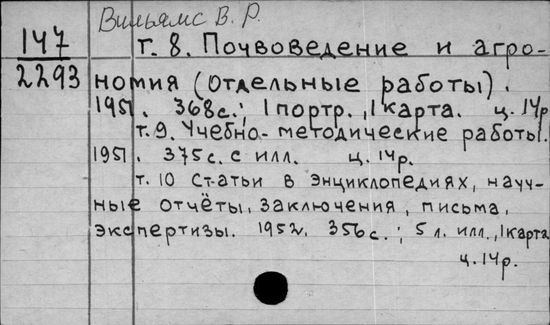 Вильямс В. Р.
147
2293
т. 8. Почвоведение и агро-
номия (отдельные работы).
1951. 368 с.; 1 портр., 1 карта. ц. 14р
т. 9. Учебно-методические работы.
1951. 375 с. с илл. ц. 14р.
т. 10 Статьи в энциклопедиях, науч-
ные отчёты, заключения, письма,
экспертизы. 1952. 356 с.; 5 л. илл., 1 карта
ц. 14р.